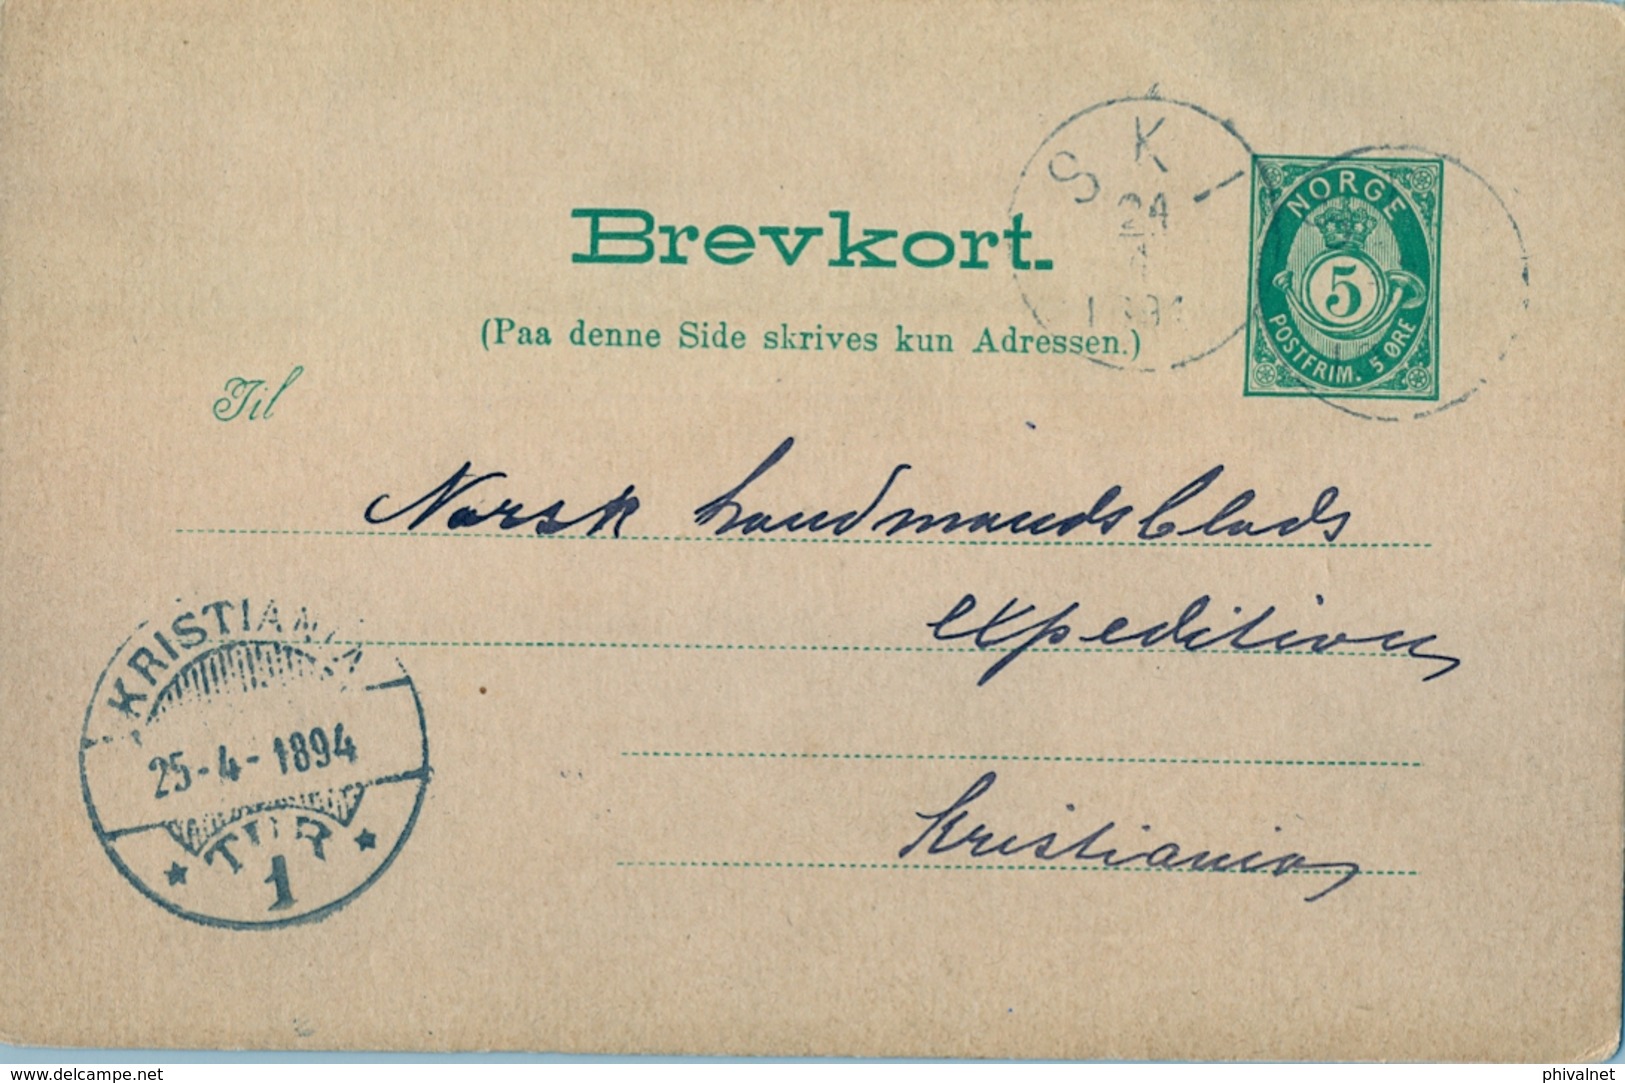 SKI
24
1894
NORGE
5
POSTFRIM. 5 ØRE
Brevkort.
(Paa denne Side skrives kun Adressen.)
Til
Norsk Landmandsblads
expedition
Kristiania
KRISTIANIA
25-4-1894
TUR
1
delcampe.net
phivalnet